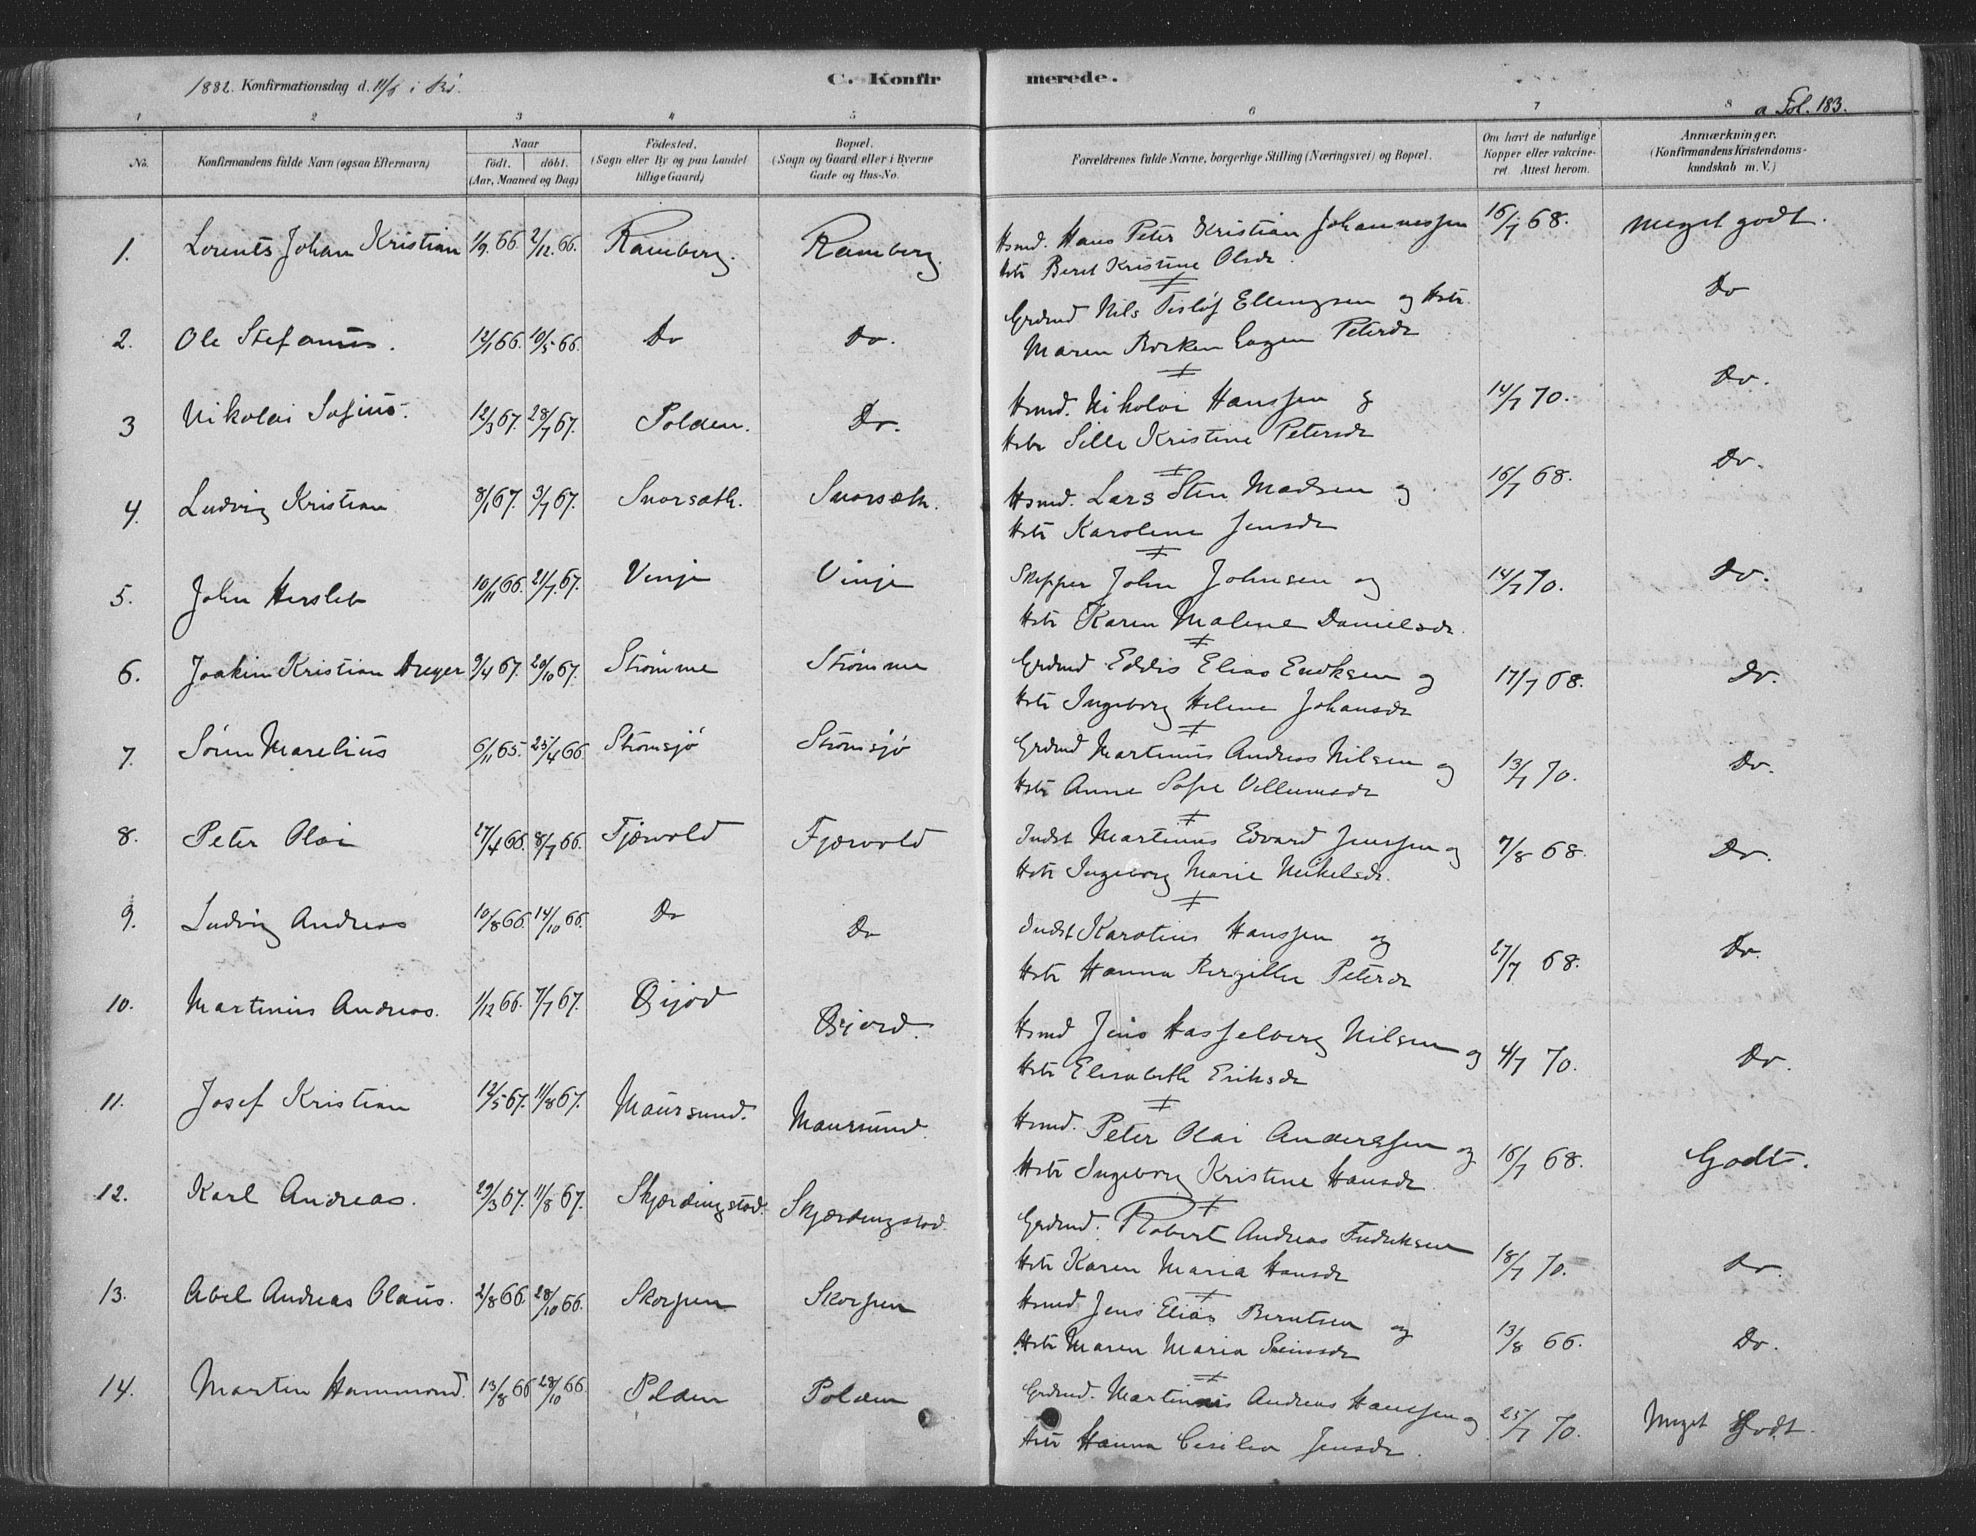 1882. Konfirmationsdag d. 11/6 i Bö.
C. Konfirmerede.
a Fol. 183.
1 2 3 4 5 6 7 8
No.
Konfirmandens fulde Navn (ogsaa Efternavn)
Naar
födt. döbt.
(Aar, Maaned og Dag)
Födested.
(Sogn eller By og paa Landet
tillige Gaard)
Bopæl.
(Sogn og Gaard eller i Byerne
Gade og Hus-No.
Forældrenes fulde Navne, borgerlige Stilling (Næringsvei) og Bopæl.
Om havt de naturlige
Kopper eller vakcine-
ret. Attest herom.
Anmærkninger.
(Konfirmandens Kristendoms-
kundskab m. V.)
1. Lorents Johan Kristian 1/9 66. 2/12 66. Ramberg. Ramberg. Hsmd. Hans Peter Kristian Johannessen 16/7 68. Meget godt.
Hstr Beret Kristine Olsdr.
2. Ole Stefanus. 12/1 66. 10/5 66. Do Do. Grdmd Nils Ellingsen og Hstr. Do
Maren Peterdr
3 Nikolai Sofius. 12/3 67. 28/7 67. Polden. Do. Hsmd. Nikolai Hanssen og 14/7 70. Do.
Hstr Sille Kristine Petersdr
4. Ludvig Kristian 8/1 67. 3/7 67. Snorsæth. Snorsæth. Hsmd. Lars Sten Madsen og 16/7 68. Do.
Hstr Karoline Jensdr
5. John Hersleb 10/11 66. 21/7 67. Vinje Vinje Skipper John Johnsen og 14/7 70. Do.
Hstr Karen Malene Danielsdr.
6. Joakim Kristian Dreyer 9/4 67. 20/10 67. Strømme Strømme Grdmd Eddis Elias Enoksen og 17/7 68. Do.
Hstr Ingeborg Helene Johansdr
7. Sören Marelius 6/11 65. 25/4 66 Strömsjö Strömsjö Grdmd Martinus Andreas Nilsen og 13/7 70. Do.
Hstr Anne Sofie Villumsdr
8. Peter Olai 27/4 66. 8/7 66. Fjærvold Fjærvold Indst Martinus Edvard Jenssen og 7/8 68. Do.
Hstr Ingeborg Marie Mikelsdr.
9. Ludvig Andreas 10/8 66. 14/10 66. Do Do Indst Karotius Hanssen og 27/7 68. Do.
Hstr Hanna Bergitte Petersdr
10. Martinus Andreas. 1/12 66. 7/7 67. Öijord Öijord. Hsmd Jens Hasselberg Nilsen og 4/7 70. Do.
Hstr Elisabeth Eriksdr
11. Josef Kristian 12/5 67. 11/8 67. Maursund. Maursund. Hsmd. Peter Olai Anderssen og 16/7 68. Godt.
Hstr Ingeborg Kristine Hansdr
12. Karl Andreas. 29/3 67. 11/8 67. Skjærdingstad. Skjærdingstad. Grdmd. Robert Andreas Fredriksen 18/7 70. Do.
Hstr Karen Maria Hansdr
13. Abel Andreas Olaus. 2/8 66. 28/10 66. Skorpen Skorpen Hsmd Jens Elias Berntsen og 13/8 66. Do.
Hstr Maren Maria
14. Martin Hammond. 13/8 66 28/10 66. Polden Polden Grdmd. Martinus Andreas Hanssen og 25/7 70. Meget Godt.
Hstr Hanna Cecilia Jensdr.